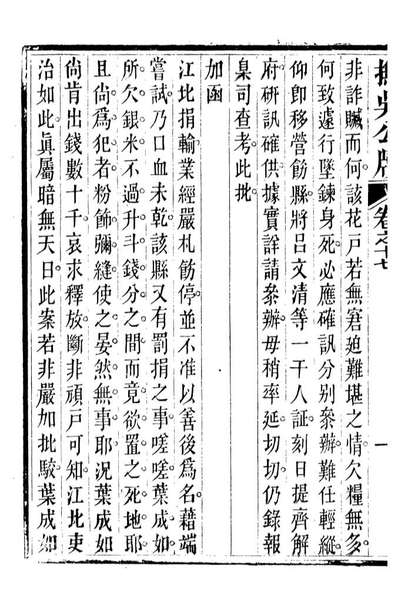 撫吳公牘 卷之十七 一
非詐贓而何該花戶若無窘廹難堪之情欠糧無多
何致遽行墜鍊身死必應確訊分别叅辦難仕輕縱
仰卽移營飭縣將呂文清等一干人証刻日提齊解
府研訊確供據實詳請叅辦毋稍率延切切仍錄報
臬司查考此批
加函
江北捐輸業經嚴札飭停並不准以善後爲名藉端
嘗試乃口血未乾該縣又有罰捐之事嗟嗟葉成如
所欠銀米不過升斗錢分之間而竟欲置之死地耶
且尙爲犯者粉飾彌縫使之晏然無事耶况葉成如
尙肯出錢數十千哀求釋放斷非頑戶可知江北吏
治如此眞屬暗無天日此案若非嚴加批駮葉成如